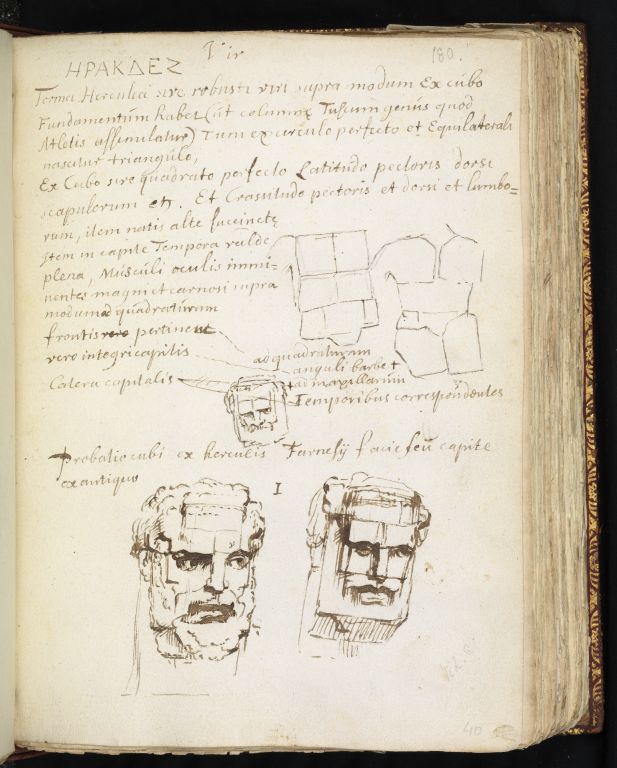 180.
ΗΡΑΚΔΕΣ
Forma Herculea sive robusti viri supra modum Ex cubo
Fundamentum habet (ut columnæ Tuscum genus quod
Atletis assimulatur) Tum ex circulo perfecto et Equilatterali
nascitur triangulo,
Ex Cubo sive quadrato perfecto Latitudo pectoris dorsi
scapulorum et. Et Crassitudo pectoris et dorsi et lumbo=
rum, item natis alte succinctę
Item in capite Tempora valde
plena, Musculi oculis immi=
nentes magni et carnosi supra
modum ad quadraturam
frontis vero pertinent
vero integri capitis
Cætera capitalis
ad quadraturam
anguli barbę +
+ ad maxillarum
Temporibus correspondentes
Probatio cubi ex herculis Farnesij facie seu capite
ex antiquo
I
40